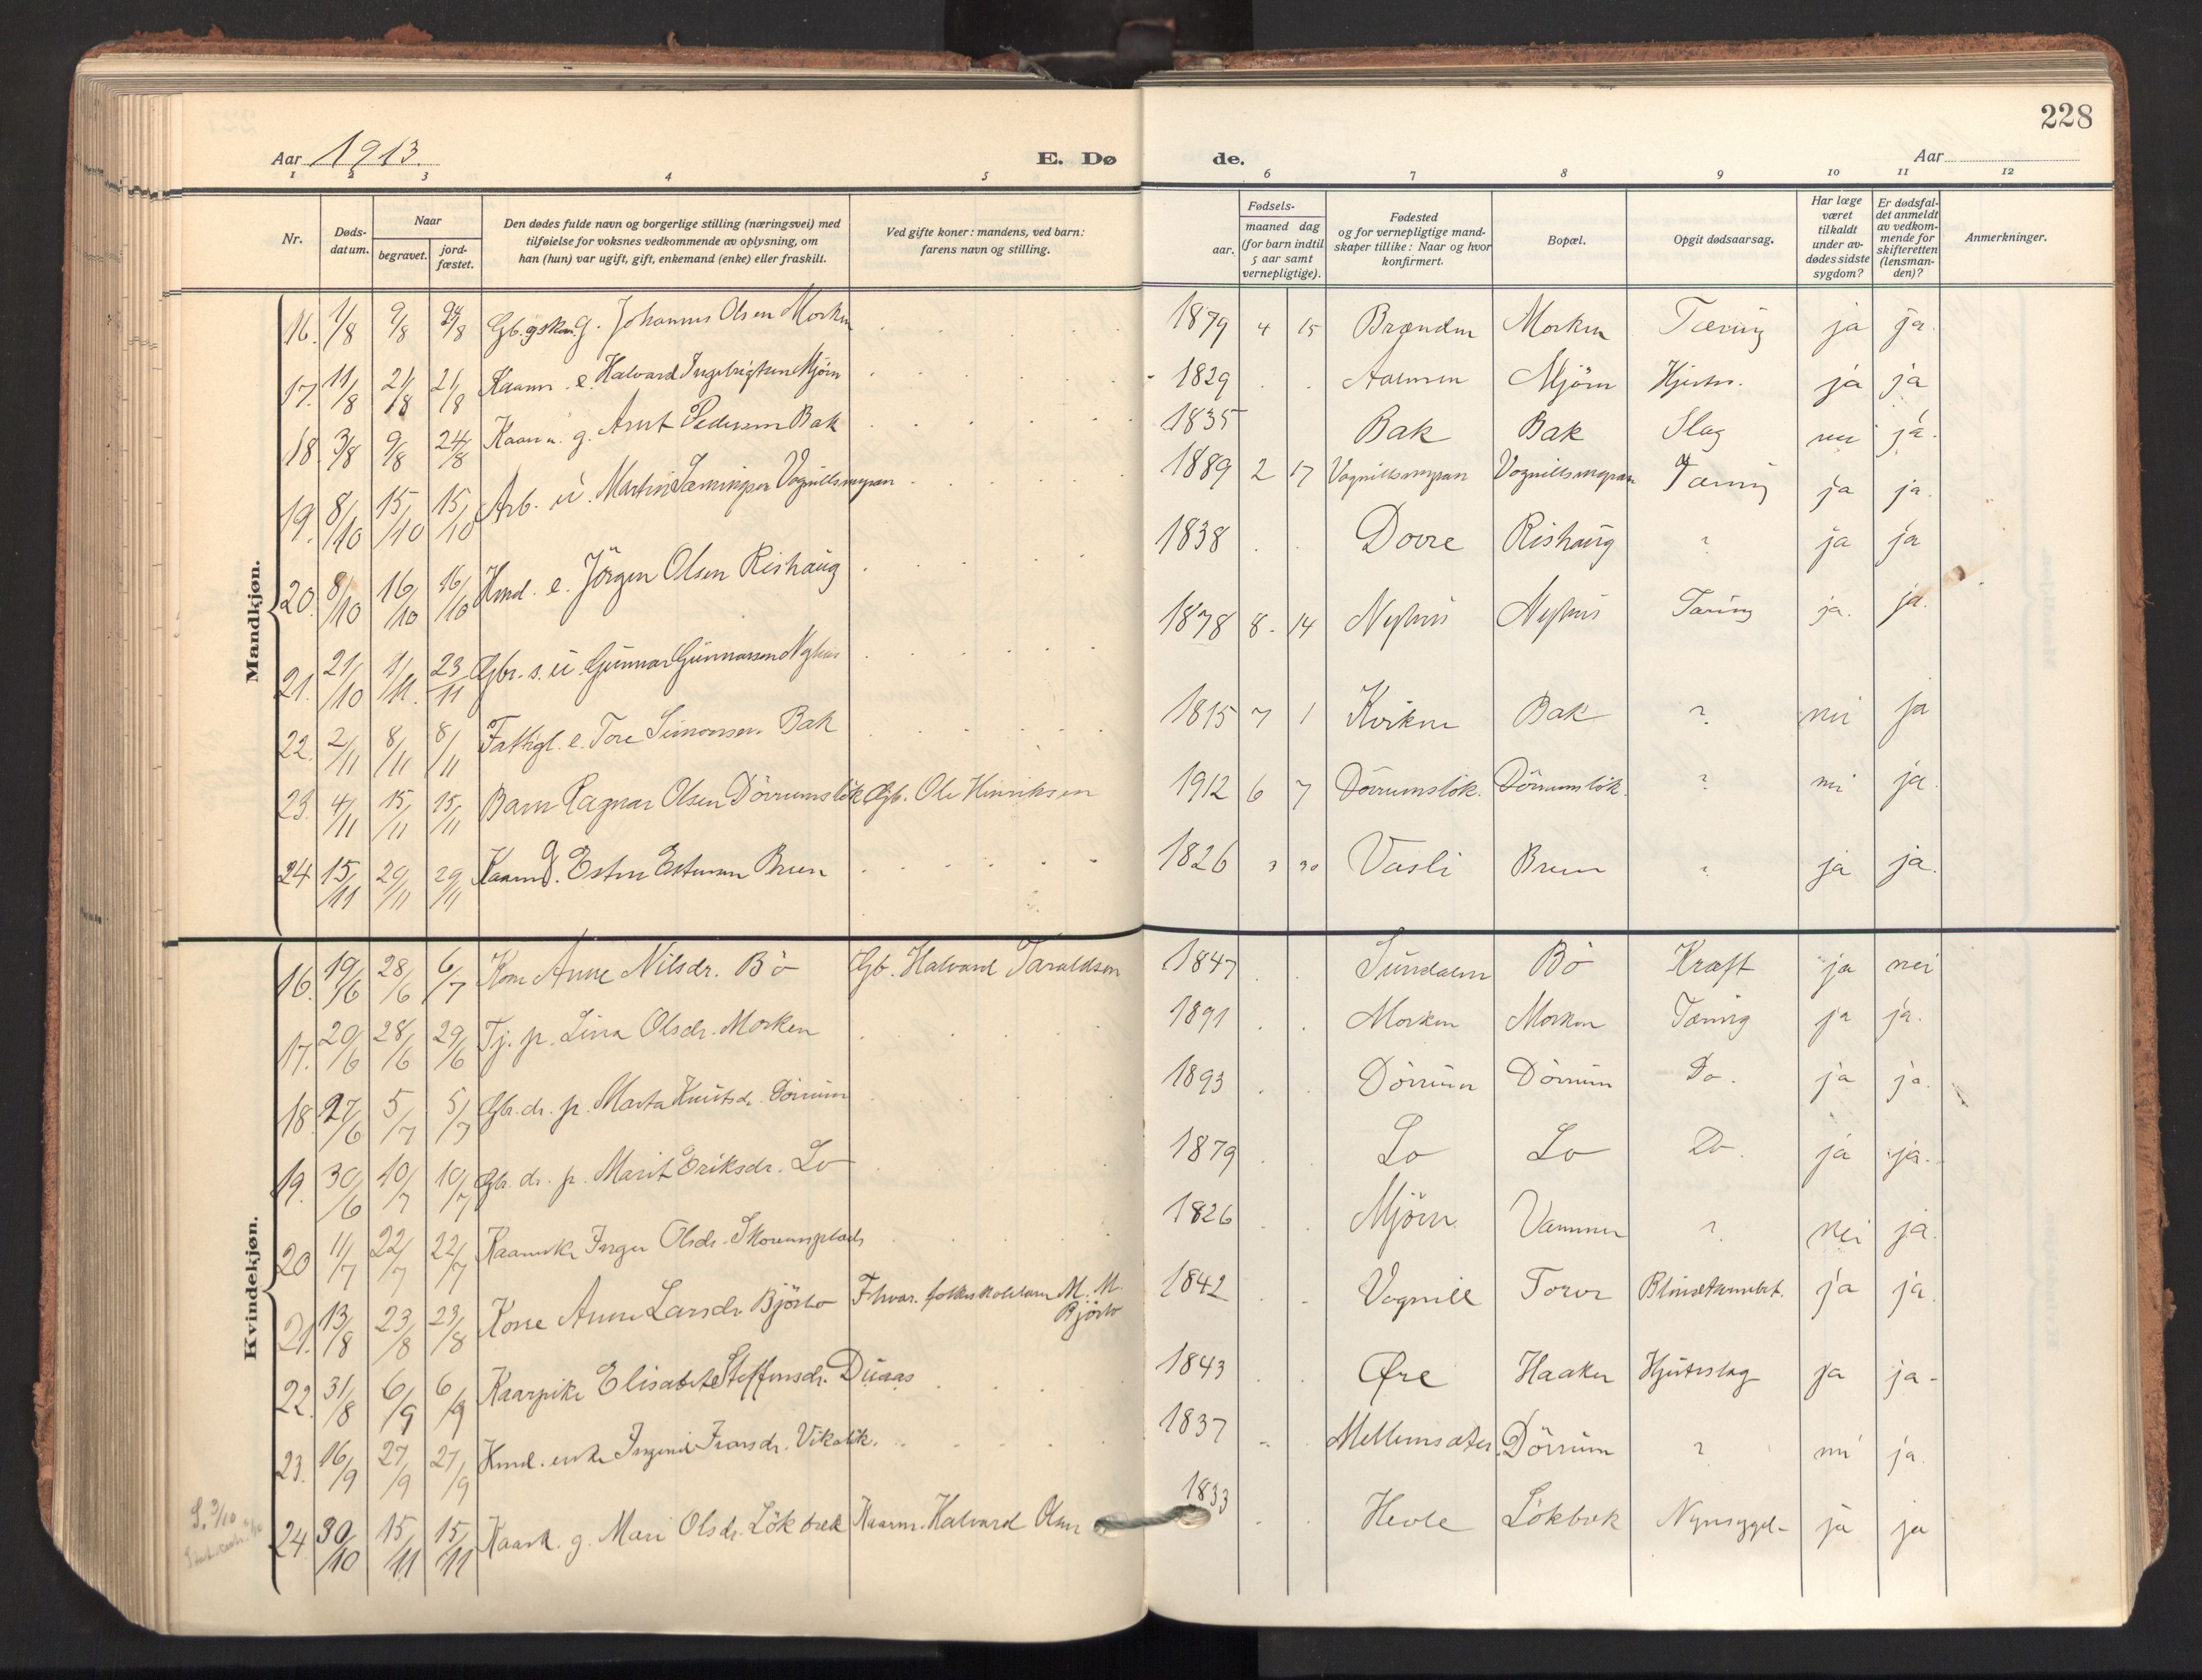 228
Aar 1913.
E. Dø de.
Aar
1 2 3 4 5 6 7 8 9 10 11 12
Nr.
Døds-
datum.
Naar
begravet.
jord-
fæstet.
Den dødes fulde navn og borgerlige stilling (næringsvei) med
tilføielse for voksnes vedkommende av oplysning, om
han (hun) var ugift, gift, enkemand (enke) eller fraskilt.
Ved gifte koner: mandens, ved barn:
farens navn og stilling.
Fødsels-
aar.
maaned dag
(for barn indtil
5 aar samt
vernepligtige).
Fødested
og for vernepligtige mand-
skaper tillike: Naar og hvor
konfirmert.
Bopæl.
Opgit dødsaarsag.
Har læge
været
tilkaldt
under av-
dødes sidste
sygdom?
Er dødsfal-
det anmeldt
av vedkom-
mende for
skifteretten
(lensman-
den)?
Anmerkninger.
Mandkjøn.
16. 1/8 9/8 24/8 Johannes Olsen Morken 1879 4 15 Brænden Morken Tæring ja ja.
17. 11/8 21/8 21/8 Kaarm. e. Halvard Ingebrigtsen Mjöen 1829 Aalmen Mjöen Hjertes. ja ja
18. 3/8 9/8 24/8 Kaarm. g. Arnt Pedersen Bak 1835 Bak Bak Slag nei ja.
19. 8/10 15/10 15/10 Arb. ü. Martin Vognillsmyran 1889 2 17 Vognillsmyran Vognillsmyran Tæring ja ja.
20. 8/10 16/10 16/10 Hmd. e. Jörgen Olsen Rishaüg 1838 Dovre Rishaüg ? ja ja
21. 21/10 1/11. 23/11 Gbr. s. ü. Günnar Günnarsen Nyhus 1878 8. 14 Nyhus Nyhus Tæring ja. ja.
22. 2/11 8/11 8/11 Fattigl. e. Tore Simonsen Bak 1815 7 1 Kvikne Bak ? nei ja
23. 4/11 15/11 15/11 Barn Ragnar Olsen Dörrumslök Gb. Ole Hinriksen 1912 6 7 Dörrumslök. Dörrumslök. ? nei ja.
24 15/11 29/11 29/11 Kaarm. g. Esten Estensen Bruen 1826 3 30 Vasli Bruen ? ja ja.
Kvindekjøn.
16. 19/6 28/6 6/7 Kone Anne Nilsdr. Bö Gb. Halvard Taraldsen 1847 Sündalen Bö Kræft ja nei
17. 20/6 28/6 29/6 Tj. p. Lina Olsdr. Morken 1891 Morken Morken Tæring ja ja.
18. 27/6 5/7 5/7 Gb. dr. p. Marta Knütsdr. Dörrüm 1893 Dörrüm Dörrüm Do. ja ja.
19. 30/6 10/7 10/7 Gb. dr. p. Marit Eriksdr. Lo 1879 Lo Lo Do. ja ja.
20 11/7 22/7 22/7 Inger Olsdr. 1826 Mjöen Vammen ? nei ja.
21. 13/8 23/8 23/8 Kone Anne Larsdr. Björbo Fhvar. M. M.
Björbo 1842 Vognill Torve ja ja.
22. 31/8 6/9 6/9 Kaarpike Elisabet Steffensdr. Düaas 1843 Øre Haaker Hjerteslag ja ja-
23. 16/9 27/9 27/9 Hmd. enke Ingeniø Ivarsdr. Vikalök. 1837 Mellemsæter Dörrüm ? nei ja.
24. 30/10 15/11 15/11 Kaark. g. Mari Olsdr. Lökbæk Kaarm. Halvard Olsen 1833 Hevle Lökbæk ja ja